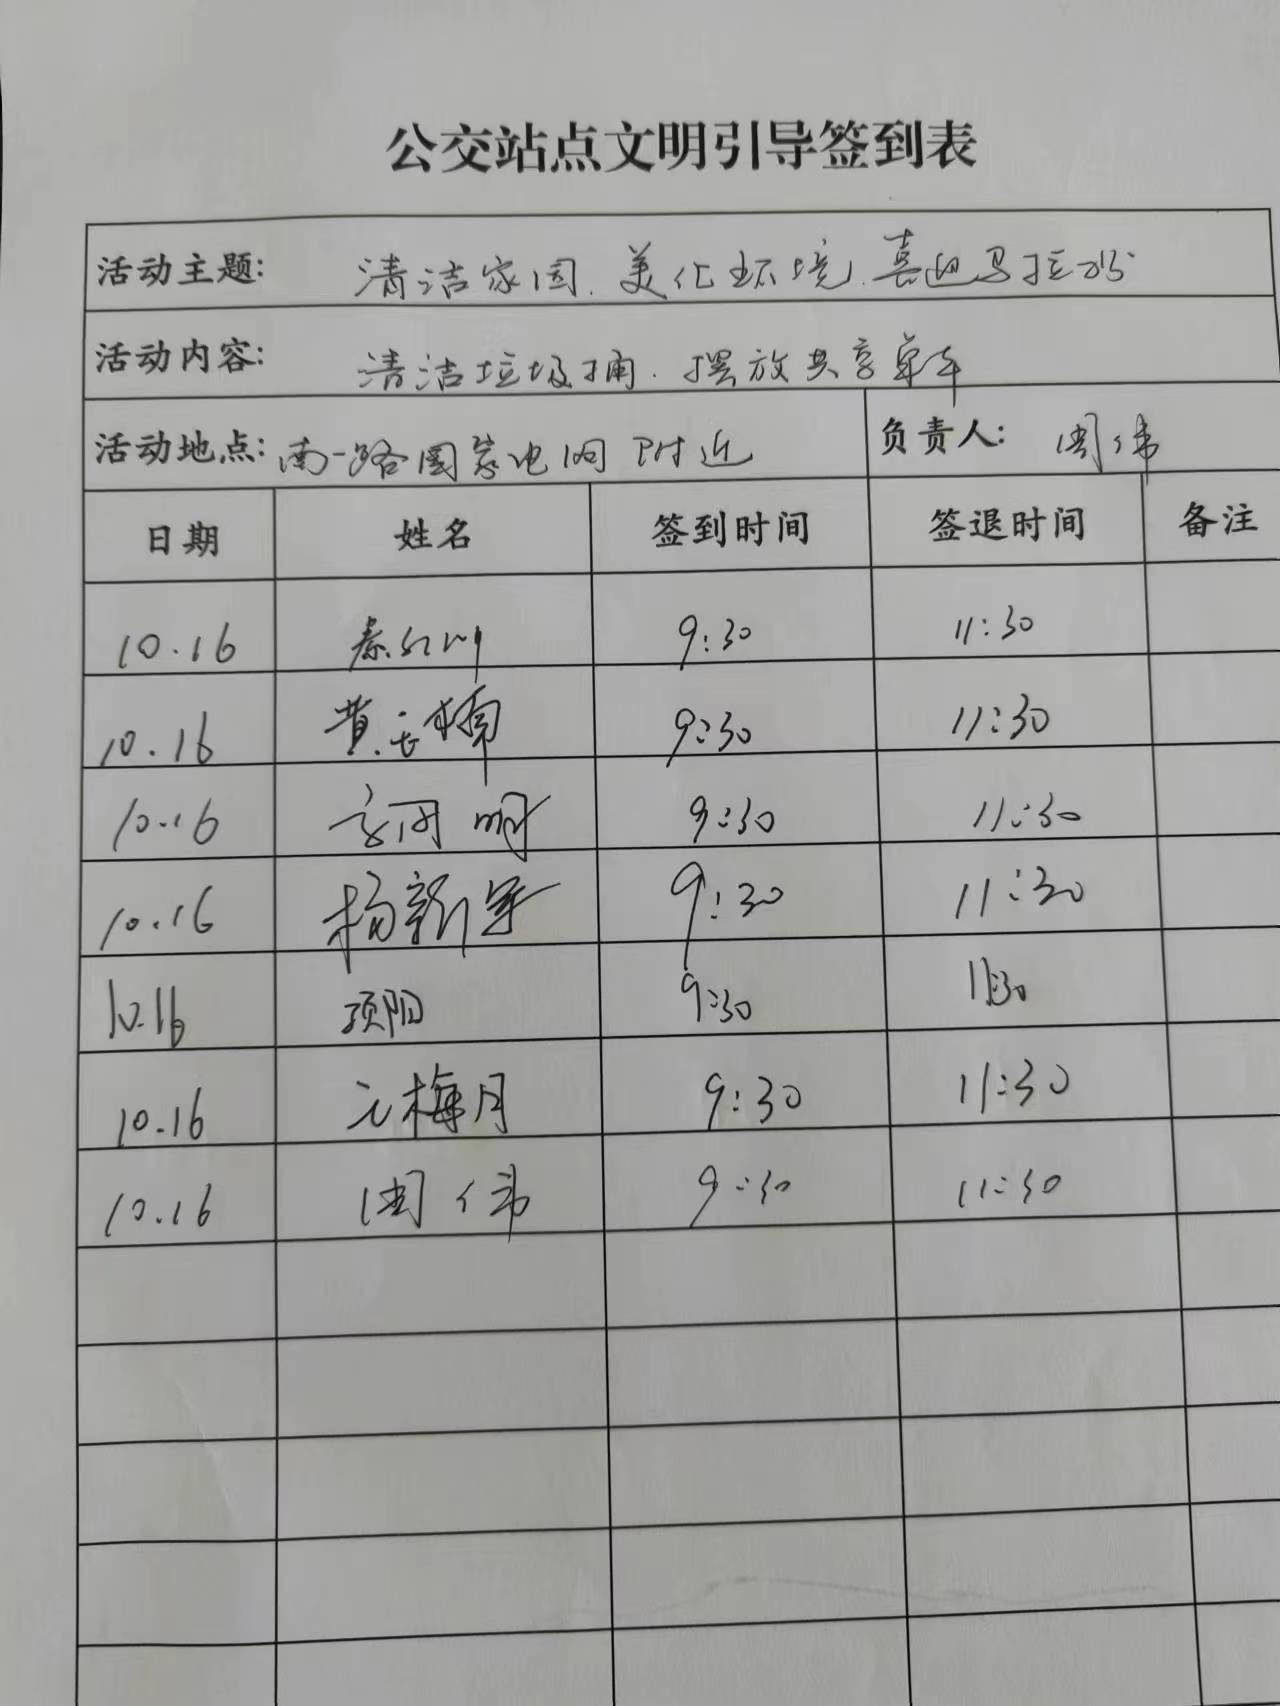 公交站点文明引导签到表
活动主题: 清洁家园.美化环境.喜迎马拉松
活动内容: 清洁垃圾桶.摆放共享单车
活动地点: 南一路国家电网附近 负责人: 周伟
日期 姓名 签到时间 签退时间 备注
10.16 秦红川 9:30 11:30
10.16 黄长楠 9:30 11:30
10.16 9:30 11:30
10.16 杨新宇 9:30 11:30
10.16 顾阳 9:30 11:30
10.16 元梅月 9:30 11:30
10.16 周伟 9:30 11:30